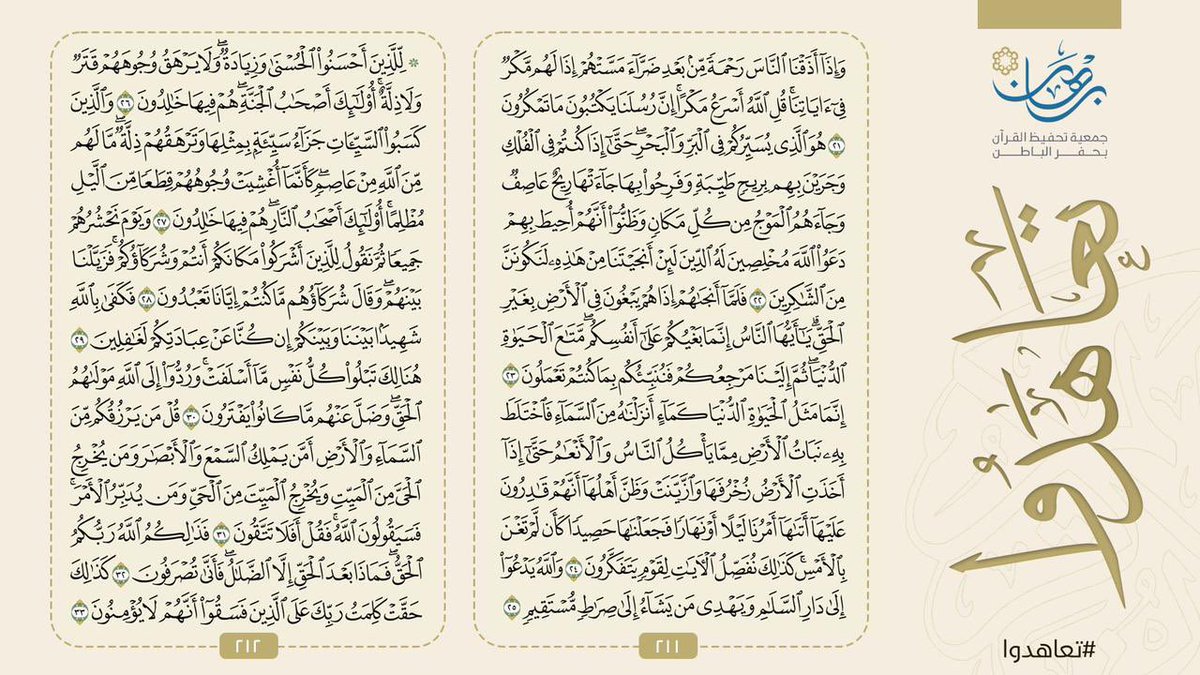 وَإِذَآ أَذَقۡنَا ٱلنَّاسَ رَحۡمَةٗ مِّنۢ بَعۡدِ ضَرَّآءَ مَسَّتۡهُمۡ إِذَا لَهُم مَّكۡرٞ
فِيٓ ءَايَاتِنَاۚ قُلِ ٱللَّهُ أَسۡرَعُ مَكۡرًاۚ إِنَّ رُسُلَنَا يَكۡتُبُونَ مَا تَمۡكُرُونَ
٢١ هُوَ ٱلَّذِي يُسَيِّرُكُمۡ فِي ٱلۡبَرِّ وَٱلۡبَحۡرِۖ حَتَّىٰٓ إِذَا كُنتُمۡ فِي ٱلۡفُلۡكِ
وَجَرَيۡنَ بِهِم بِرِيحٖ طَيِّبَةٖ وَفَرِحُواْ بِهَا جَآءَتۡهَا رِيحٌ عَاصِفٞ
وَجَآءَهُمُ ٱلۡمَوۡجُ مِن كُلِّ مَكَانٖ وَظَنُّوٓاْ أَنَّهُمۡ أُحِيطَ بِهِمۡ
دَعَوُاْ ٱللَّهَ مُخۡلِصِينَ لَهُ ٱلدِّينَ لَئِنۡ أَنجَيۡتَنَا مِنۡ هَٰذِهِۦ لَنَكُونَنَّ
مِنَ ٱلشَّٰكِرِينَ ٢٢ فَلَمَّآ أَنجَىٰهُمۡ إِذَا هُمۡ يَبۡغُونَ فِي ٱلۡأَرۡضِ بِغَيۡرِ
ٱلۡحَقِّۗ يَٰٓأَيُّهَا ٱلنَّاسُ إِنَّمَا بَغۡيُكُمۡ عَلَىٰٓ أَنفُسِكُمۖ مَّتَٰعَ ٱلۡحَيَوٰةِ
ٱلدُّنۡيَاۖ ثُمَّ إِلَيۡنَا مَرۡجِعُكُمۡ فَنُنَبِّئُكُم بِمَا كُنتُمۡ تَعۡمَلُونَ ٢٣
إِنَّمَا مَثَلُ ٱلۡحَيَوٰةِ ٱلدُّنۡيَا كَمَآءٍ أَنزَلۡنَٰهُ مِنَ ٱلسَّمَآءِ فَٱخۡتَلَطَ
بِهِۦ نَبَاتُ ٱلۡأَرۡضِ مِمَّا يَأۡكُلُ ٱلنَّاسُ وَٱلۡأَنۡعَٰمُ حَتَّىٰٓ إِذَآ
أَخَذَتِ ٱلۡأَرۡضُ زُخۡرُفَهَا وَٱزَّيَّنَتۡ وَظَنَّ أَهۡلُهَآ أَنَّهُمۡ قَٰدِرُونَ
عَلَيۡهَآ أَتَىٰهَآ أَمۡرُنَا لَيۡلًا أَوۡ نَهَارٗا فَجَعَلۡنَٰهَا حَصِيدٗا كَأَن لَّمۡ تَغۡنَ
بِٱلۡأَمۡسِۚ كَذَٰلِكَ نُفَصِّلُ ٱلۡأٓيَٰتِ لِقَوۡمٖ يَتَفَكَّرُونَ ٢٤ وَٱللَّهُ يَدۡعُوٓاْ
إِلَىٰ دَارِ ٱلسَّلَٰمِ وَيَهۡدِي مَن يَشَآءُ إِلَىٰ صِرَٰطٖ مُّسۡتَقِيمٖ ٢٥
٢١١
۞ لِّلَّذِينَ أَحۡسَنُواْ ٱلۡحُسۡنَىٰ وَزِيَادَةٞۖ وَلَا يَرۡهَقُ وُجُوهَهُمۡ قَتَرٞ
وَلَا ذِلَّةٌۚ أُوْلَٰٓئِكَ أَصۡحَٰبُ ٱلۡجَنَّةِۖ هُمۡ فِيهَا خَٰلِدُونَ ٢٦ وَٱلَّذِينَ
كَسَبُواْ ٱلسَّيِّـَٔاتِ جَزَآءُ سَيِّئَةِۭ بِمِثۡلِهَا وَتَرۡهَقُهُمۡ ذِلَّةٞۖ مَّا لَهُم
مِّنَ ٱللَّهِ مِنۡ عَاصِمٖۖ كَأَنَّمَآ أُغۡشِيَتۡ وُجُوهُهُمۡ قِطَعٗا مِّنَ ٱلَّيۡلِ
مُظۡلِمًاۚ أُوْلَٰٓئِكَ أَصۡحَٰبُ ٱلنَّارِۖ هُمۡ فِيهَا خَٰلِدُونَ ٢٧ وَيَوۡمَ نَحۡشُرُهُمۡ
جَمِيعٗا ثُمَّ نَقُولُ لِلَّذِينَ أَشۡرَكُواْ مَكَانَكُمۡ أَنتُمۡ وَشُرَكَآؤُكُمۡۚ فَزَيَّلۡنَا
بَيۡنَهُمۡۖ وَقَالَ شُرَكَآؤُهُم مَّا كُنتُمۡ إِيَّانَا تَعۡبُدُونَ ٢٨ فَكَفَىٰ بِٱللَّهِ
شَهِيدَۢا بَيۡنَنَا وَبَيۡنَكُمۡ إِن كُنَّا عَنۡ عِبَادَتِكُمۡ لَغَٰفِلِينَ ٢٩
هُنَالِكَ تَبۡلُواْ كُلُّ نَفۡسٖ مَّآ أَسۡلَفَتۡۚ وَرُدُّوٓاْ إِلَى ٱللَّهِ مَوۡلَىٰهُمُ
ٱلۡحَقِّۖ وَضَلَّ عَنۡهُم مَّا كَانُواْ يَفۡتَرُونَ ٣٠ قُلۡ مَن يَرۡزُقُكُم مِّنَ
ٱلسَّمَآءِ وَٱلۡأَرۡضِ أَمَّن يَمۡلِكُ ٱلسَّمۡعَ وَٱلۡأَبۡصَٰرَ وَمَن يُخۡرِجُ
ٱلۡحَيَّ مِنَ ٱلۡمَيِّتِ وَيُخۡرِجُ ٱلۡمَيِّتَ مِنَ ٱلۡحَيِّ وَمَن يُدَبِّرُ ٱلۡأَمۡرَۚ
فَسَيَقُولُونَ ٱللَّهُۚ فَقُلۡ أَفَلَا تَتَّقُونَ ٣١ فَذَٰلِكُمُ ٱللَّهُ رَبُّكُمُ
ٱلۡحَقُّۖ فَمَاذَا بَعۡدَ ٱلۡحَقِّ إِلَّا ٱلضَّلَٰلُۖ فَأَنَّىٰ تُصۡرَفُونَ ٣٢ كَذَٰلِكَ
حَقَّتۡ كَلِمَتُ رَبِّكَ عَلَى ٱلَّذِينَ فَسَقُوٓاْ أَنَّهُمۡ لَا يُؤۡمِنُونَ ٣٣
٢١٢
برهان
جمعية تحفيظ القرآن
بحفر الباطن
تعاهدوا
#تعاهدوا